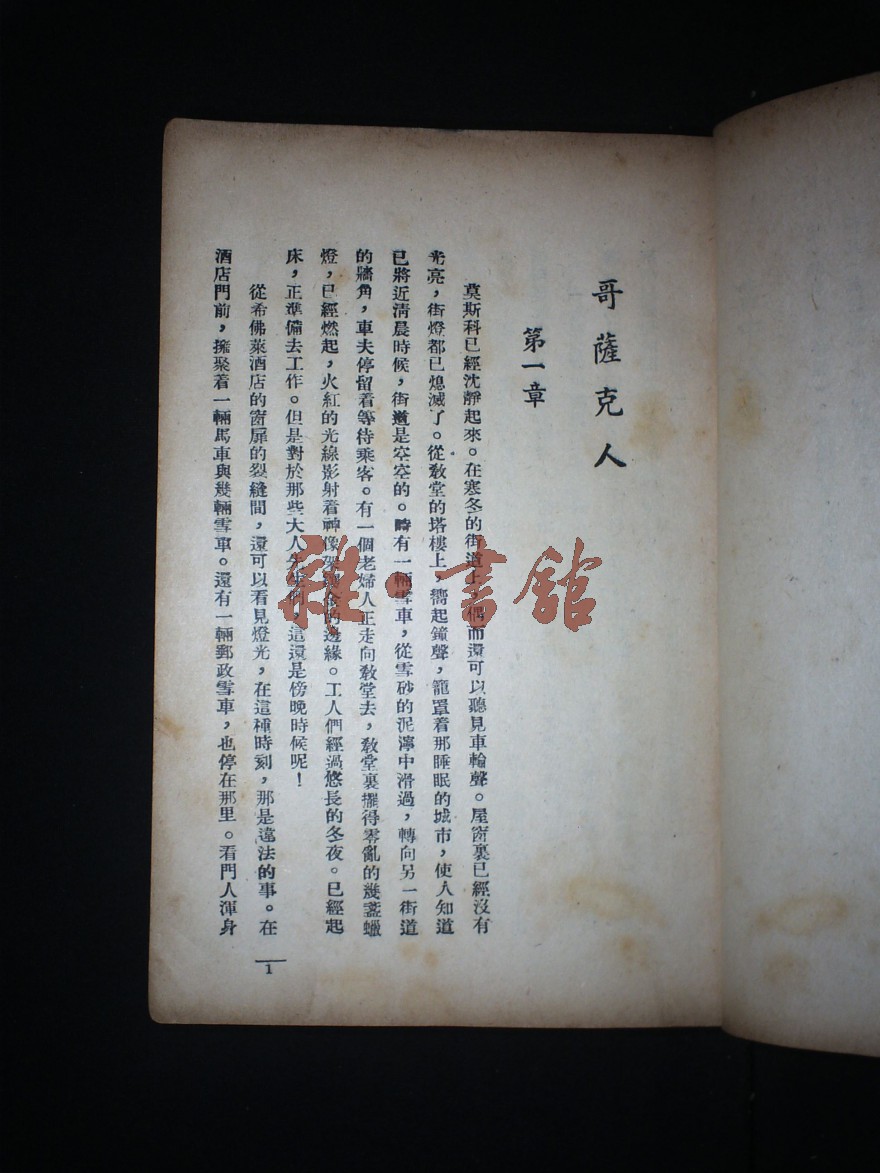 哥薩克人
第一章
莫斯科已經沈靜起來。在寒冬的街道上，偶而還可以聽見車輪聲。屋窗裏已經沒有
光亮，街燈都已熄滅了。從教堂的塔樓上，嚮起鐘聲，籠罩着那睡眠的城市，使人知道
已將近淸晨時候，街道是空空的。時有一輛雪車，從雪砂的泥濘中滑過，轉向另一街道
的牆角，車夫停留着等待乘客。有一個老婦人正走向教堂去，教堂裏擺得零亂的幾盞蠟
燈，已經燃起，火紅的光線影射着神像架 的邊緣。工人們經過悠長的冬夜。已經起
床，正準備去工作。但是對於那些大人先生們，這還是傍晚時候呢！
從希佛萊酒店的窗扉的裂縫間，還可以看見燈光，在這種時刻，那是違法的事。在
酒店門前，擁聚着一輛馬車與幾輛雪車。還有一輛郵政雪車，也停在那里。看門人渾身
1
雜·書館